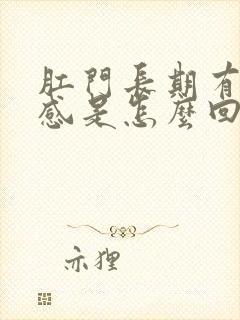 肛門長期有
感是怎麼回
亦狸